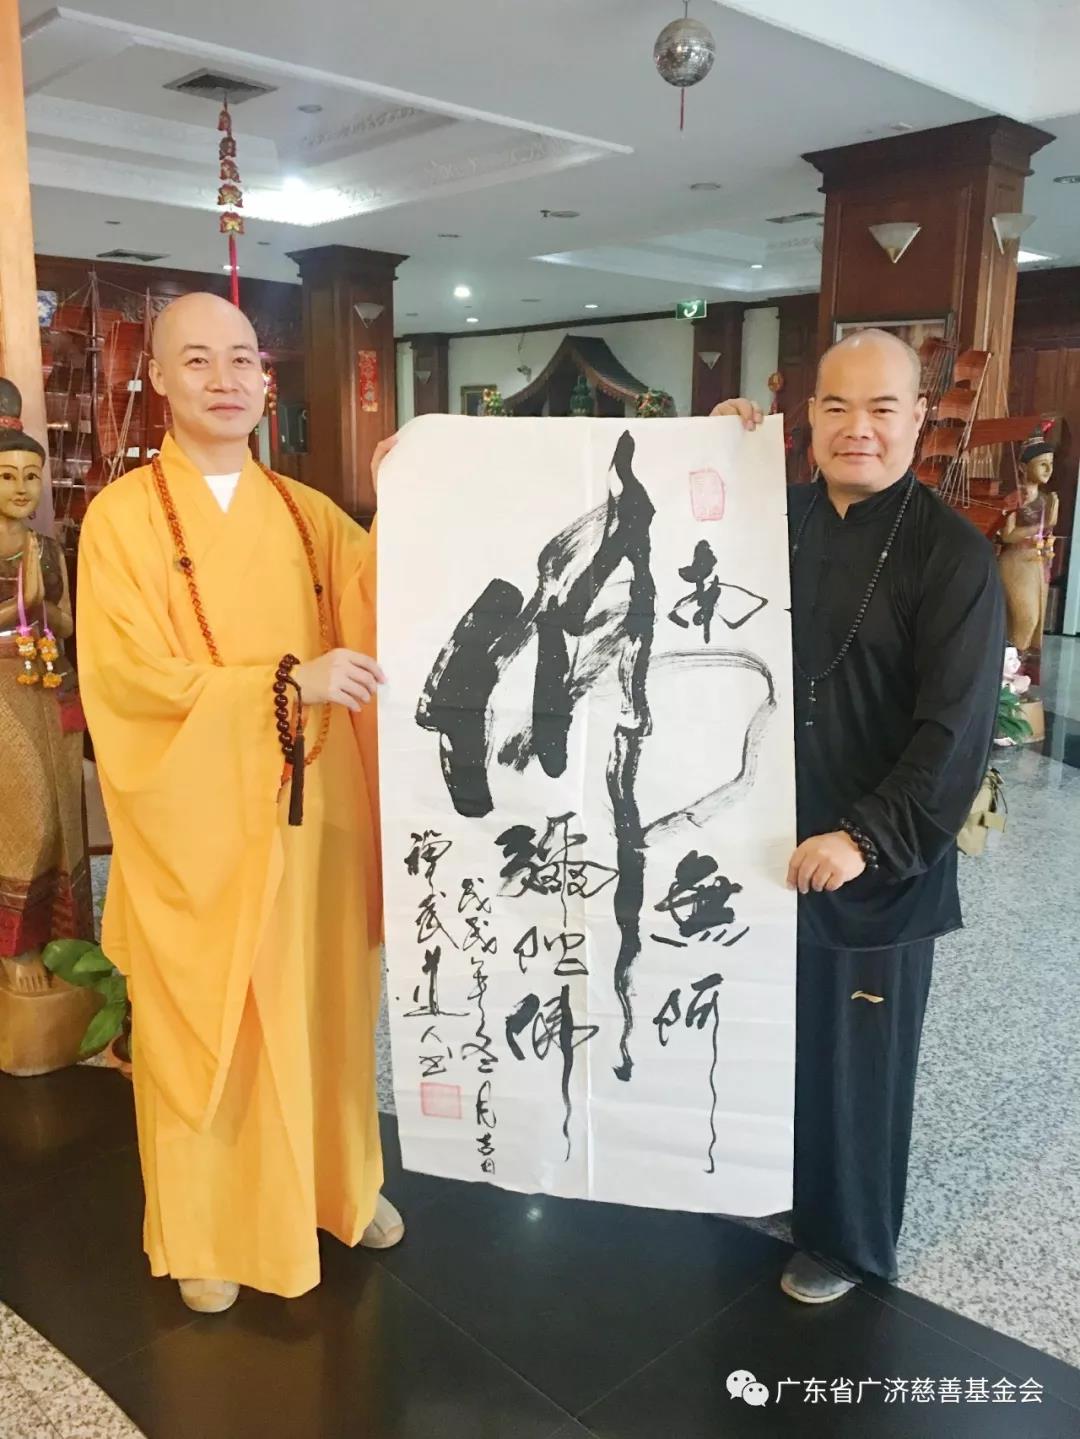 南無阿
佛
彌陀佛
戊戌年冬月吉日
禪武道人书
广东省广济慈善基金会